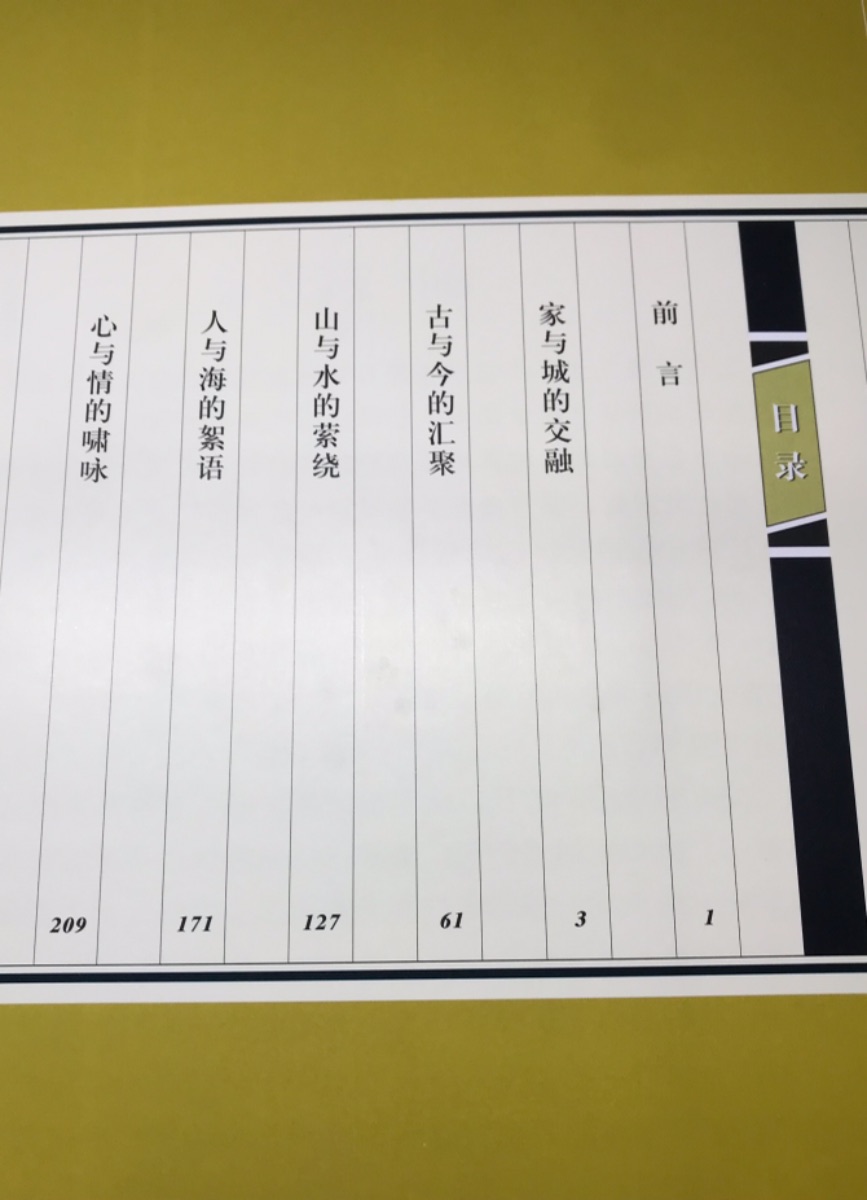 目录
前言
1
家与城的交融
3
古与今的汇聚
61
山与水的萦绕
127
人与海的絮语
171
心与情的啸咏
209